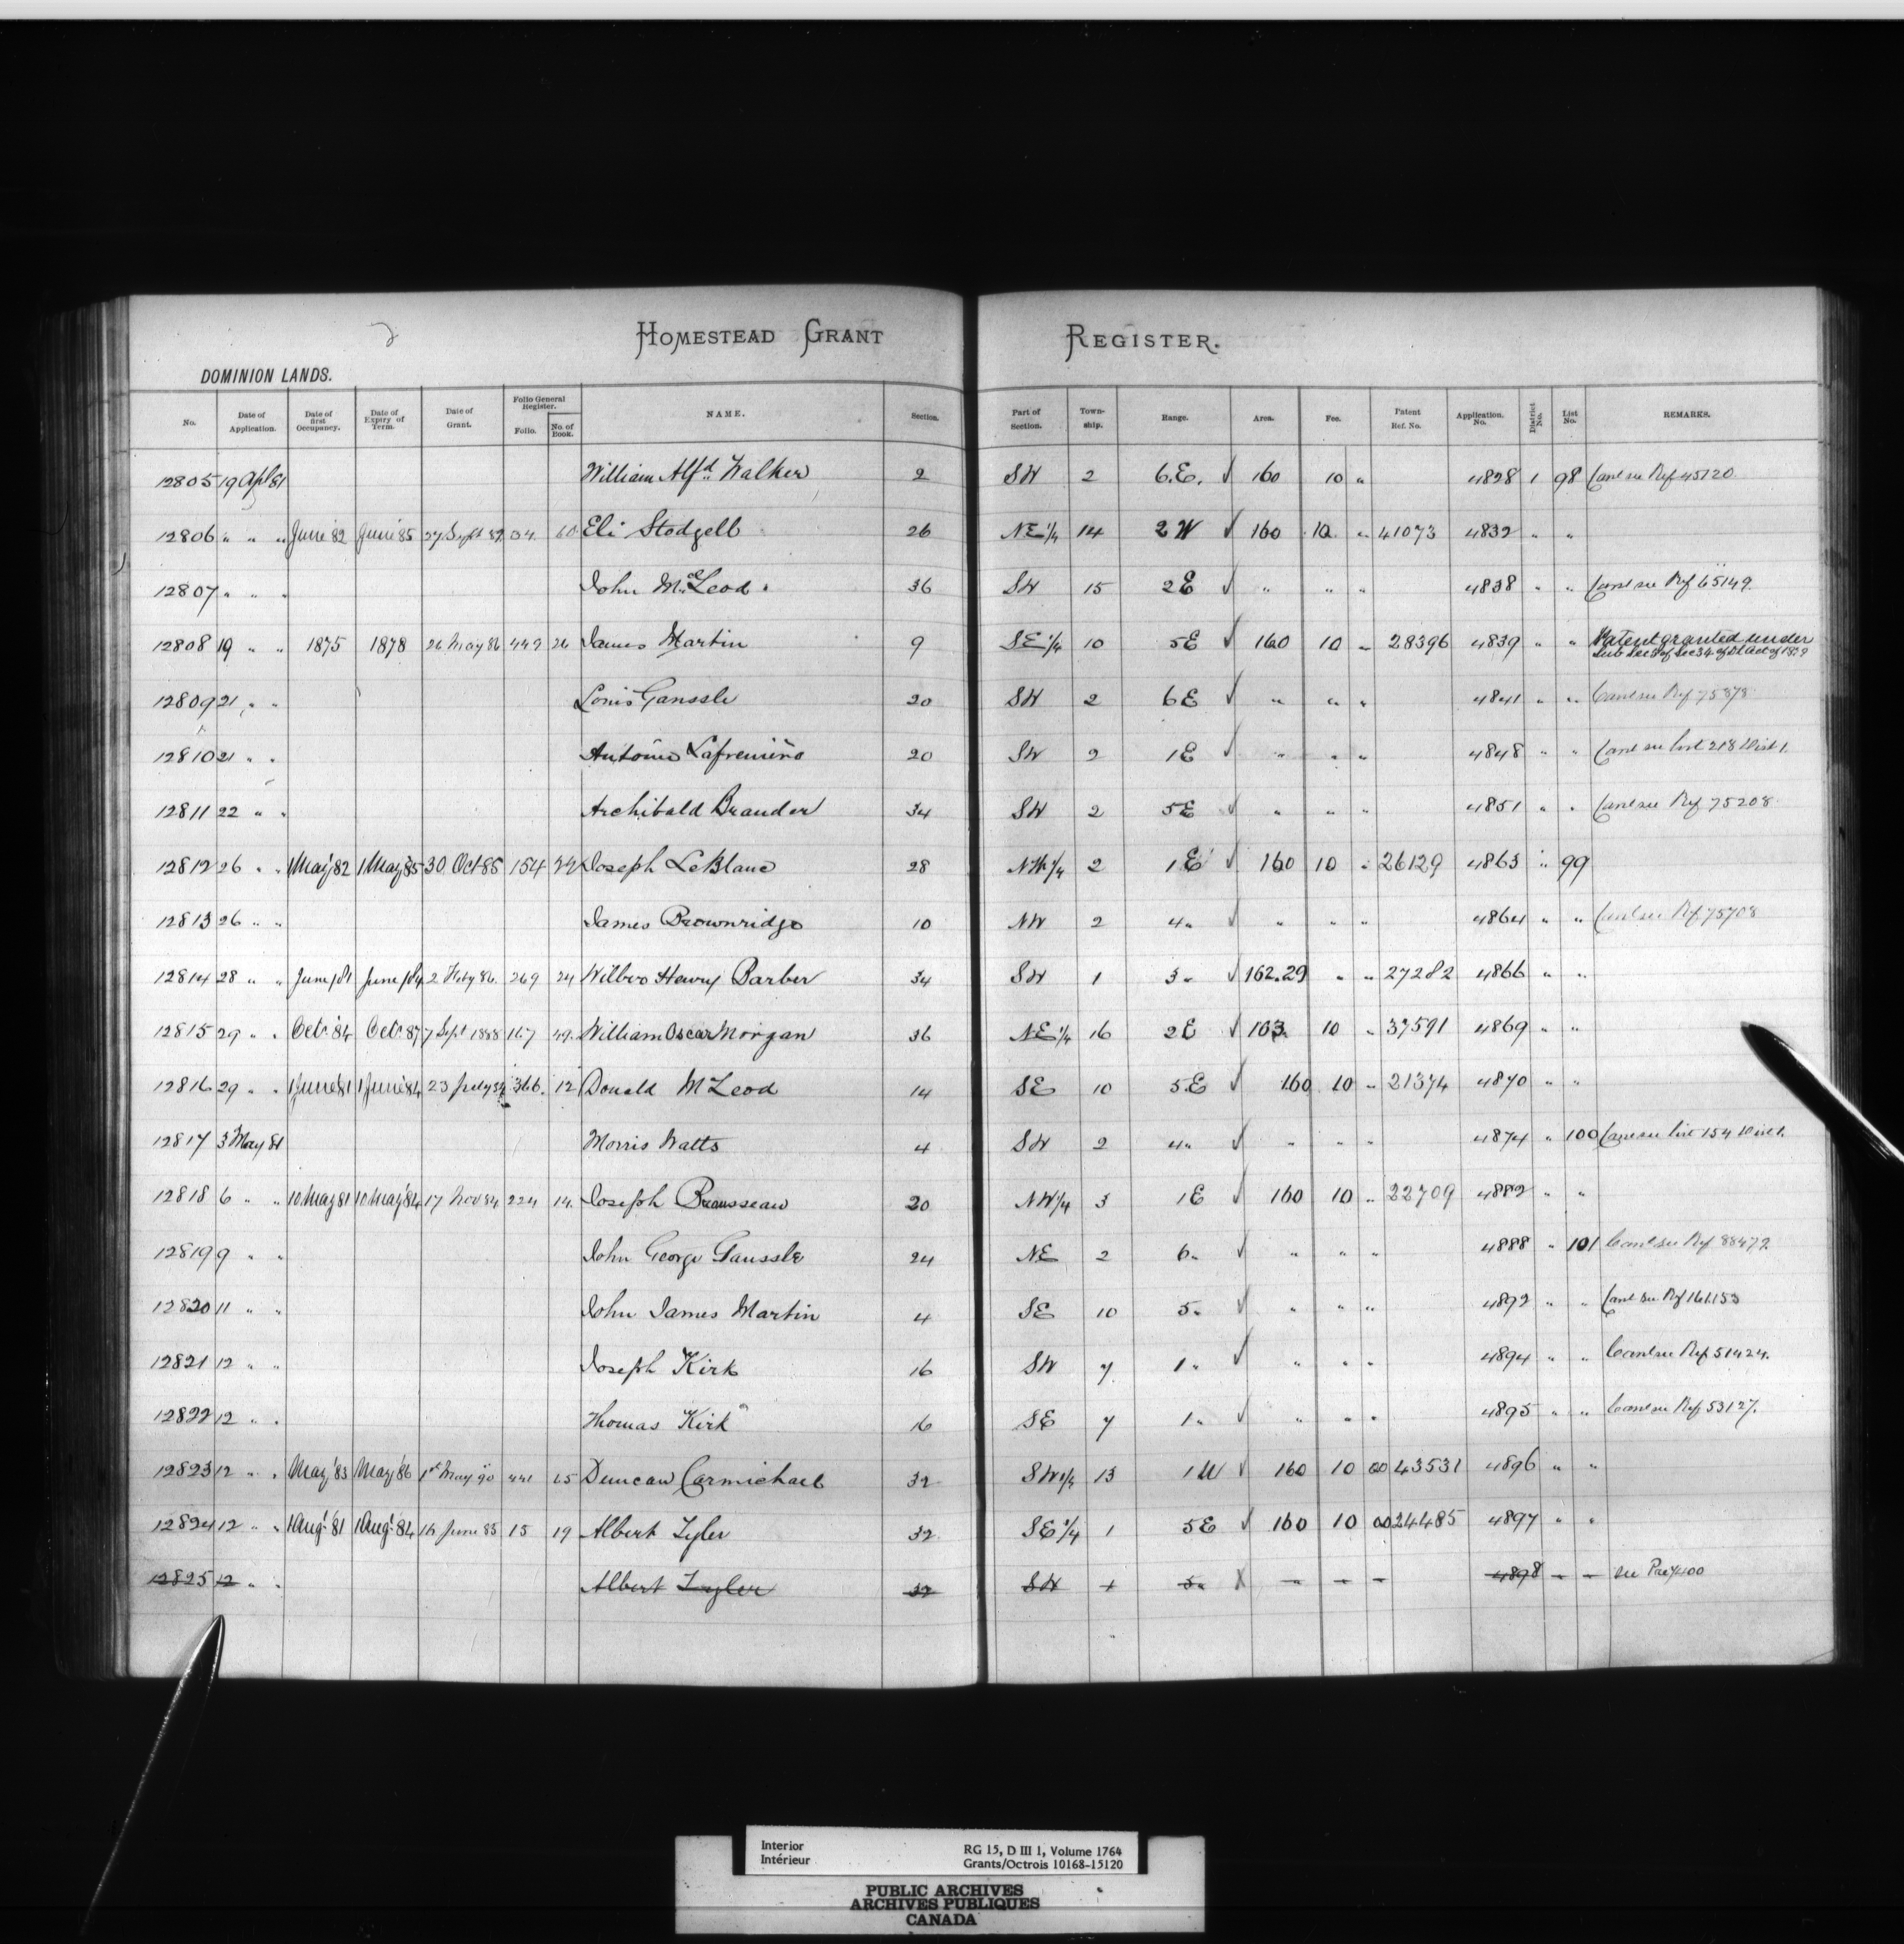 HOMESTEAD GRANT REGISTER.
DOMINION LANDS.
No. Date of Application. Date of first Occupancy. Date of Expiry of Term. Date of Grant. Folio General Register. Folio. No. of Book. NAME. Section. Part of Section. Township. Range. Area. Fee. Patent Ref. No. Application. No. District No. List No. REMARKS.
12805 19 Apl 81 William Alfd. Walker 2 SW 2 6.E. ✓ 160 10 " 4828 1 98 Canl see Ref 45120
12806 " " " June 82 June 85 27 Sept 89 34 60 Eli Stodgell 26 NE 1/4 14 2 W ✓ 160 10 " 41073 4832 " "
12807 " " " John McLeod 36 SW 15 2 E ✓ " " " 4838 " " Canl see Ref 65149
12808 19 " " 1875 1878 26 May 86 449 26 James Martin 9 SE 1/4 10 5E ✓ 160 10 " 28396 4839 " " Patent granted under Sub Sec 3 of Sec 34 of DL Act of 1879
12809 21 " " Louis Ganssle 20 SW 2 6 E ✓ " " " 4841 " " Canl see Ref 75878
12810 21 " " Lafreniere 20 SW 2 1E ✓ " " " 4848 " " Canl see List 218 Dist 1.
12811 22 " " Archibald Brander 34 SW 2 5E ✓ " " " 4851 " " Canl see Ref 75208
12812 26 " " 1 May '82 1 May '85 30 Oct 85 154 22 Joseph LeBlanc 28 NW 1/4 2 1 E ✓ 160 10 " 26129 4863 " 99
12813 26 " " James Brownridge 10 NW 2 4 " ✓ " " " 4864 " " Canl see Ref 75708
12814 28 " " June /81 June /84 2 Feby 86 269 24 Henry Barber 34 SW 1 3 " ✓ 162.29 " " 27282 4866 " "
12815 29 " " Octr '84 Octr 87 7 Sept 1888 167 49 William Oscar Morgan 36 NE 1/4 16 2 E ✓ 163 10 " 37591 4869 " "
12816 29 " " 1 June '81 1 June '84 23 July 84 366. 12 Donald McLeod 14 SE 10 5 E ✓ 160 10 " 21374 4870 " "
12817 3 May 81 Morris Watts 4 SW 2 4 " ✓ " " " 4874 " 100 Canl see List 154 Dist 1.
12818 6 " " 10 May 81 10 May '84 17 Nov 84 224 14. Joseph Brausseau 20 NW 1/4 3 1 E ✓ 160 10 " 22709 4882 " "
12819 9 " " John George Ganssle 24 NE 2 6 " ✓ " " " 4888 " 101 Canl see Ref 88472
12820 11 " " John James Martin 4 SE 10 5 " ✓ " " " 4892 " " Canl see Ref 161153
12821 12 " " Joseph Kirk 16 SW 7 1 " ✓ " " " 4894 " " Canl see Ref 51424.
12822 12 " " Thomas Kirk 16 SE 7 1 " ✓ " " " 4895 " " Canl see Ref 53127.
12823 12 " " May '83 May '86 1st May 90 441 65 Duncan Carmichael 32 SW 1/4 13 1 W ✓ 160 10 00 43531 4896 " "
12824 12 " " 1 Aug '81 1 Aug '84 16 June 85 15 19 Albert Tyler 32 SE 1/4 1 5 E ✓ 160 10 00 24485 4897 " "
12825 12 " " Albert Tyler 32 SW 1 5 " X " " " 4898 " " see Pre 7400
Interior RG 15, D III 1, Volume 1764
Intérieur Grants/Octrois 10168-15120
PUBLIC ARCHIVES
ARCHIVES PUBLIQUES
CANADA